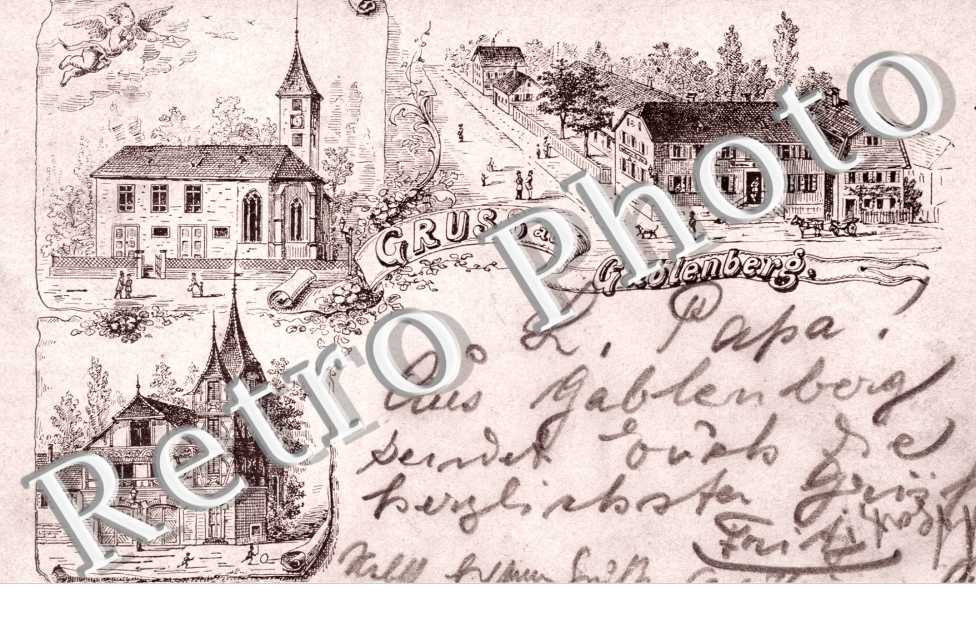 GRUSS aus
Gablenberg.
L. Papa!
Aus Gablenberg
sendet Euch die
herzlichsten Grüße
Fritz
Retro Photo